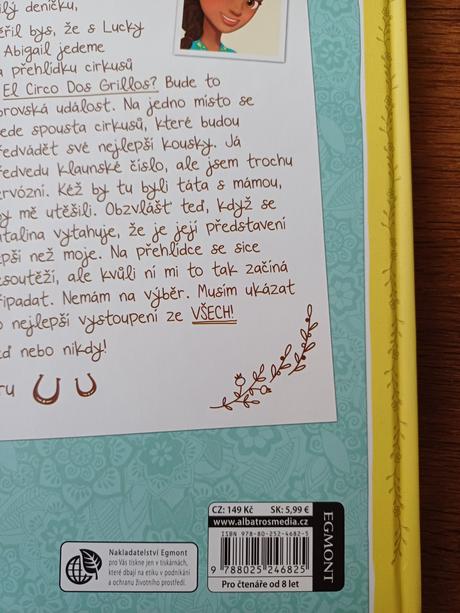 ilý deníčku,
ěřil bys, že s Lucky
Abigail jedeme
a přehlídku cirkusů
El Circo Dos Grillos? Bude to
brovská událost. Na jedno místo se
ede spousta cirkusů, které budou
ředvádět své nejlepší kousky. Já
ředvedu klaunské číslo, ale jsem trochu
ervózní. Kéž by tu byli táta s mámou,
by mě utěšili. Obzvlášť teď, když se
atalina vytahuje, že je její představení
epší než moje. Na přehlídce se sice
esoutěží, ale kvůli ní mi to tak začíná
řipadat. Nemám na výběr. Musím ukázat
o nejlepší vystoupení ze VŠECH!
eď nebo nikdy!
ru
CZ: 149 Kč SK: 5,99 €
www.albatrosmedia.cz
ISBN 978-80-252-4682-5
9 788025 246825
Pro čtenáře od 8 let
EGMONT
Nakladatelství Egmont
pro Vás tiskne jen v tiskárnách,
které dbají na etiku v podnikání
a ochranu životního prostředí.